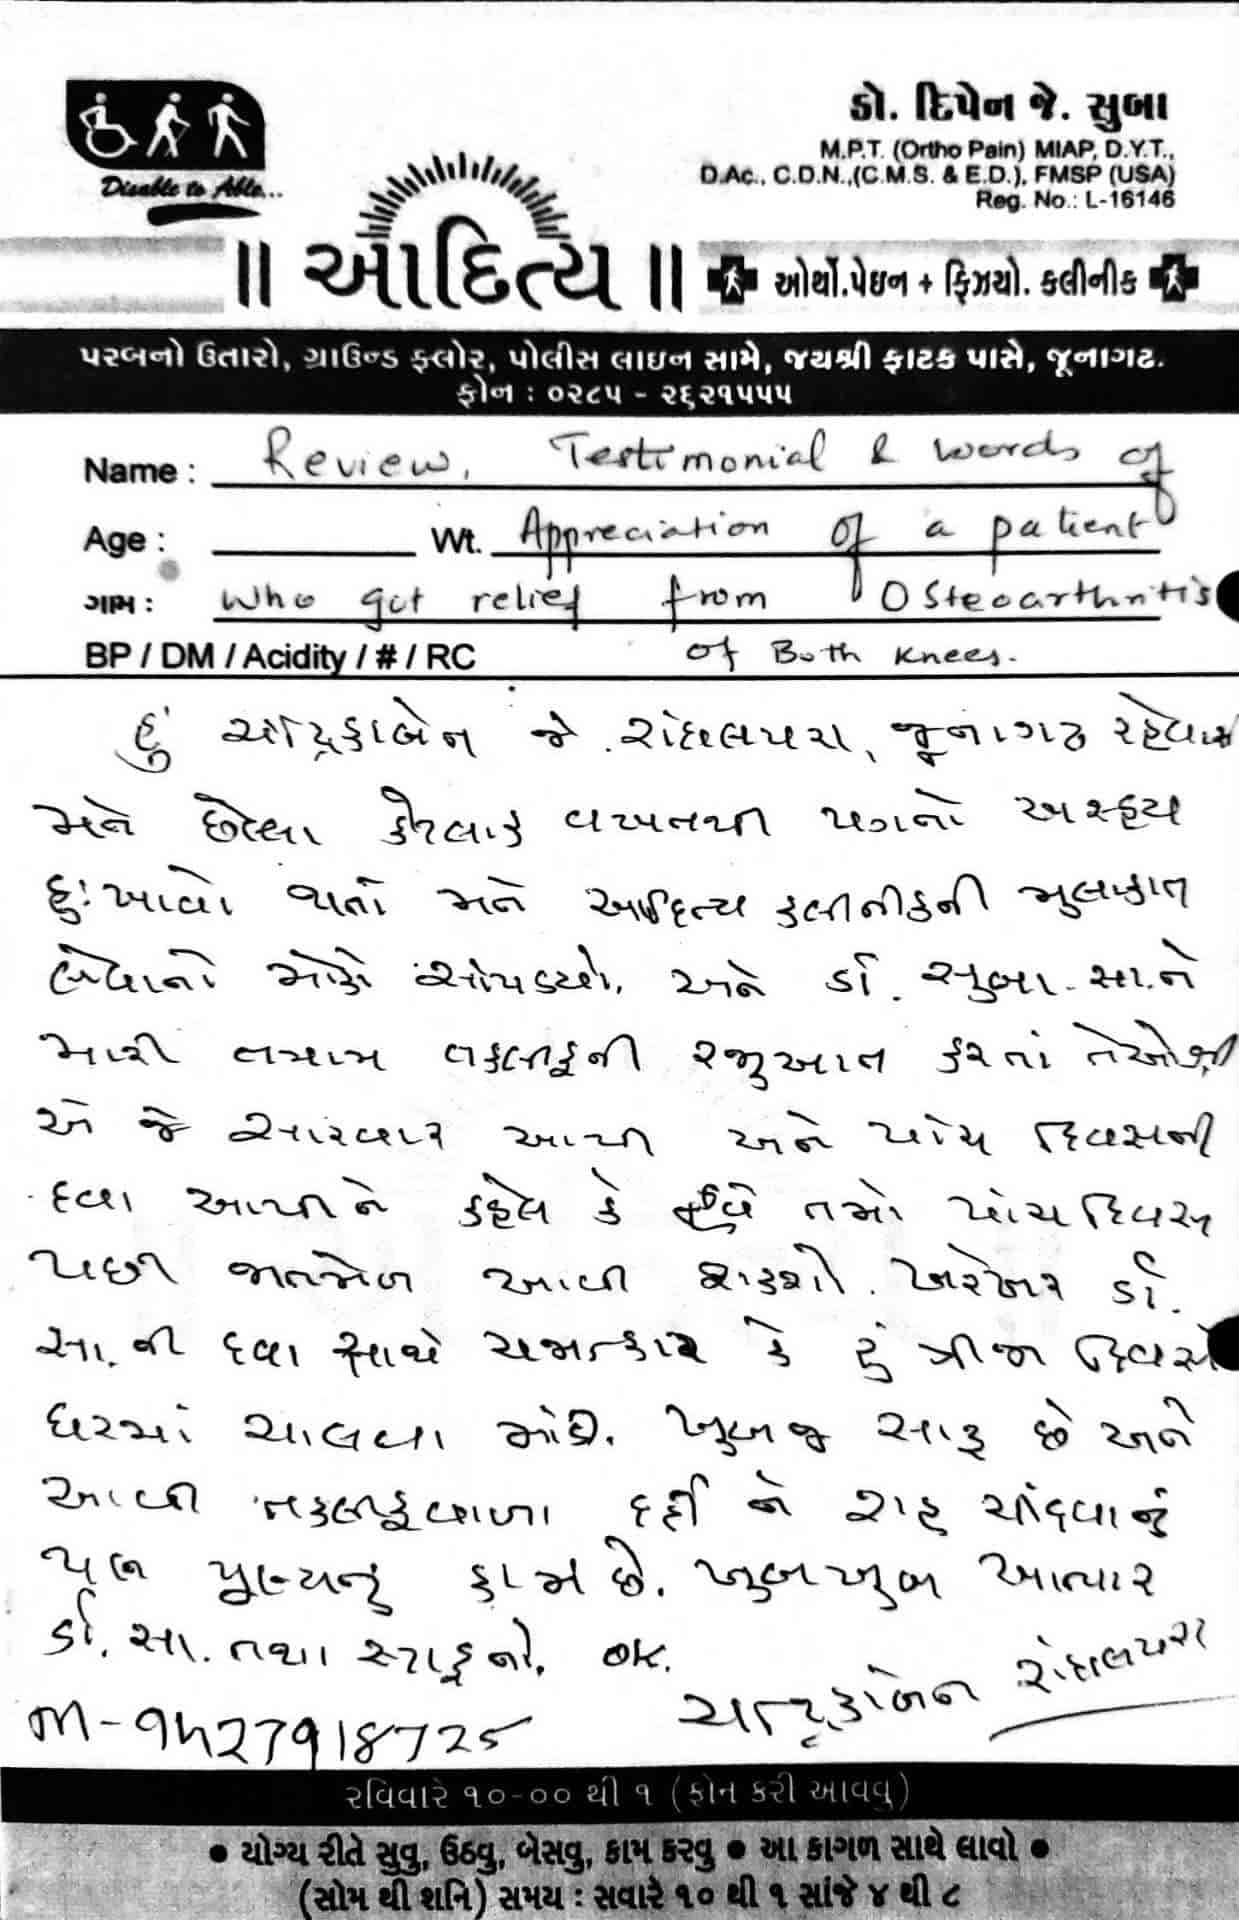 Disable to Able...
ડો. દિપેન જે. સુબા
M.P.T. (Ortho Pain) MIAP, D.Y.T.,
D.Ac., C.D.N.,(C.M.S. & E.D.), FMSP (USA)
Reg. No.: L-16146
॥ આદિત્ય ॥ ઓર્થો.પેઇન + ફિઝયો. કલીનીક
પરબનો ઉતારો, ગ્રાઉન્ડ ફ્લોર, પોલીસ લાઇન સામે, જયશ્રી ફાટક પાસે, જૂનાગઢ.
ફોન : ૦૨૮૫ - ૨૬૨૧૫૫૫
Name : Review, Testimonial & words of
Age : Wt. Appreciation of a patient
ગામ : who got relief from Osteoarthritis
BP / DM / Acidity / # / RC of Both knees.
હું ચંદ્રિકાબેન જે. રાંધલપરા, જૂનાગઢ
મને છેલ્લા કેટલાક વખતથી પગનો અસહ્ય
દુઃખાવો થતાં મને આદિત્ય કલીનીકની મુલાકાત
લેવાનો મોકો સાંપડયો. અને ડૉ. સુબા સા.ને
મારી તમામ તકલીફની રજુઆત કરતાં તેઓશ્રી
એ જે સારવાર આપી અને પાંચ દિવસની
દવા આપીને કહેલ કે હવે તમો પાંચ દિવસ
પછી જાતમેળ આવી શકશો. ખરેખર ડૉ.
સા. ની દવા સાથે ચમત્કાર કે હું ત્રીજા દિવસે
ઘરમાં ચાલવા માંડી. ખુબજ સારૂ છે અને
આવી તકલીફવાળા દર્દી ને રાહ ચીંધવાનું
પણ પુણ્યનું કામ છે. ખુબખુબ આભાર
ડૉ. સા. તથા સ્ટાફનો. OK.
ચન્દ્રિકાબેન રાંધલપરા
M-9427918725
રવિવારે ૧૦-૦૦ થી ૧ (ફોન કરી આવવુ)
• યોગ્ય રીતે સુવુ, ઉઠવુ, બેસવુ, કામ કરવુ • આ કાગળ સાથે લાવો •
(સોમ થી શનિ) સમય : સવારે ૧૦ થી ૧ સાંજે ૪ થી ૮